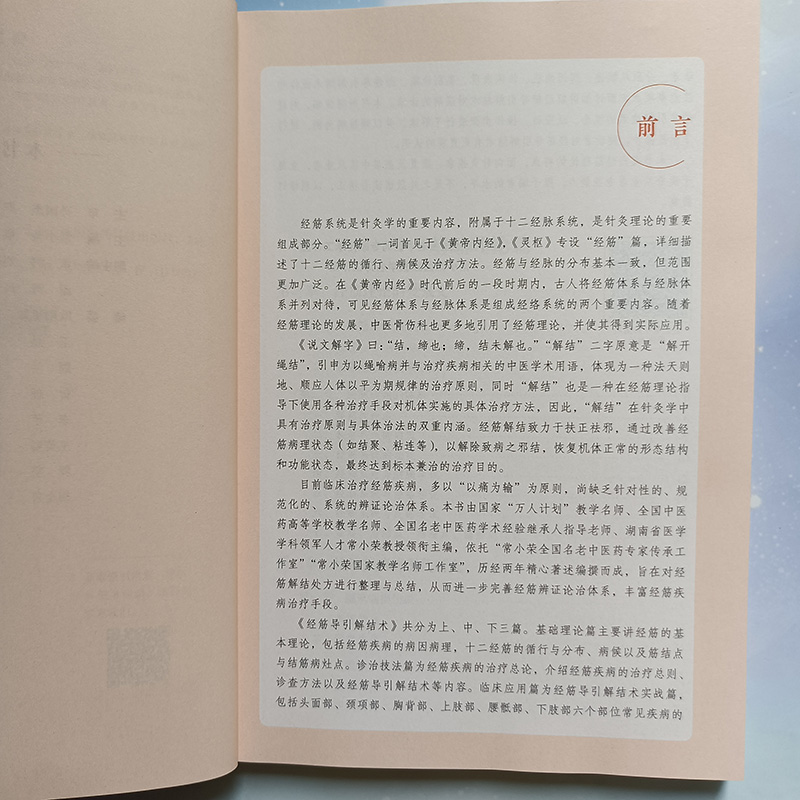 前言
经筋系统是针灸学的重要内容，附属于十二经脉系统，是针灸理论的重要
组成部分。“经筋”一词首见于《黄帝内经》，《灵枢》专设“经筋”篇，详细描
述了十二经筋的循行、病候及治疗方法。经筋与经脉的分布基本一致，但范围
更加广泛。在《黄帝内经》时代前后的一段时期内，古人将经筋体系与经脉体
系并列对待，可见经筋体系与经脉体系是组成经络系统的两个重要内容。随着
经筋理论的发展，中医骨伤科也更多地引用了经筋理论，并使其得到实际应用。
《说文解字》曰：“结，缔也；缔，结未解也。”“解结”二字原意是“解开
绳结”，引申为以绳喻病并与治疗疾病相关的中医学术用语，体现为一种法天则
地、顺应人体以平为期规律的治疗原则，同时“解结”也是一种在经筋理论指
导下使用各种治疗手段对机体实施的具体治疗方法，因此，“解结”在针灸学中
具有治疗原则与具体治法的双重内涵。经筋解结致力于扶正祛邪，通过改善经
筋病理状态（如结聚、粘连等），以解除致病之邪结，恢复机体正常的形态结构
和功能状态，最终达到标本兼治的治疗目的。
目前临床治疗经筋疾病，多以“以痛为输”为原则，尚缺乏针对性的、规
范化的、系统的辨证论治体系。本书由国家“万人计划”教学名师、全国中医
药高等学校教学名师、全国名老中医药学术经验继承人指导老师、湖南省医学
学科领军人才常小荣教授领衔主编，依托“常小荣全国名老中医药专家传承工
作室”“常小荣国家教学名师工作室”，历经两年精心著述编撰而成，旨在对经
筋解结处方进行整理与总结，从而进一步完善经筋辨证论治体系，丰富经筋疾
病治疗手段。
《经筋导引解结术》共分为上、中、下三篇。基础理论篇主要讲经筋的基
本理论，包括经筋疾病的病因病理，十二经筋的循行与分布、病候以及筋结点
与结筋病灶点。诊治技法篇为经筋疾病的治疗总论，介绍经筋疾病的治疗总则、
诊查方法以及经筋导引解结术等内容。临床应用篇为经筋导引解结术实战篇，
包括头面部、颈项部、胸背部、上肢部、腰骶部、下肢部六个部位常见疾病的